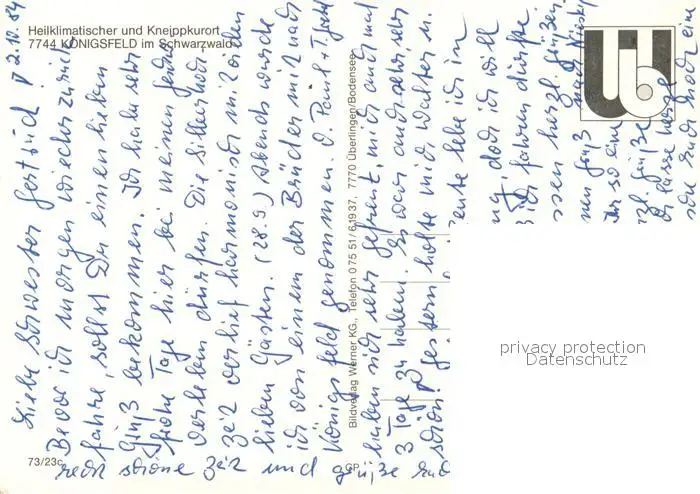 Heilklimatischer und Kneippkurort
7744 KÖNIGSFELD im Schwarzwald
2.10.84
Liebe Schwester Gertrud!
Bevor ich morgen wieder zurück
fahre, sollst Du einen lieben
Gruß bekommen. Ich habe sehr
frohe Tage hier bei meinen
verleben dürfen. Die Silberhoch
zeit verlief harmonisch mit vielen
lieben Gästen. (28.9.) Abends wurde
ich von einem der Brüder mit nach
Königsfeld genommen. Paul +
haben sich sehr gefreut, mich auch mal
3 Tage zu haben. Es war auch sehr, sehr
schön! Gestern holte mich Walter
Heute lebe ich in
doch ich will
fahren dürfte.
herzl. grüßen
nen Gruß
Ihr so eine
herzl. Grüße
lasse herzl.
und auch eine
recht schöne Zeit und grüße
Bildverlag Werner KG., Telefon 0 75 51/6 19 37, 7770 Überlingen/Bodensee
73/23c
GP
privacy protection
Datenschutz